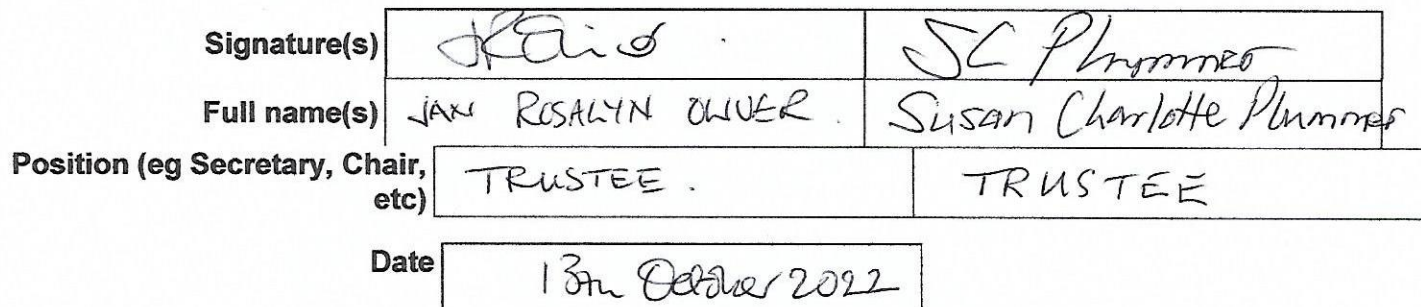 Signature(s) SC Plummer
Full name(s) JAN ROSALYN OLIVER. Susan Charlotte Plummer
Position (eg Secretary, Chair,
etc) TRUSTEE. TRUSTEE
Date 13th October 2022